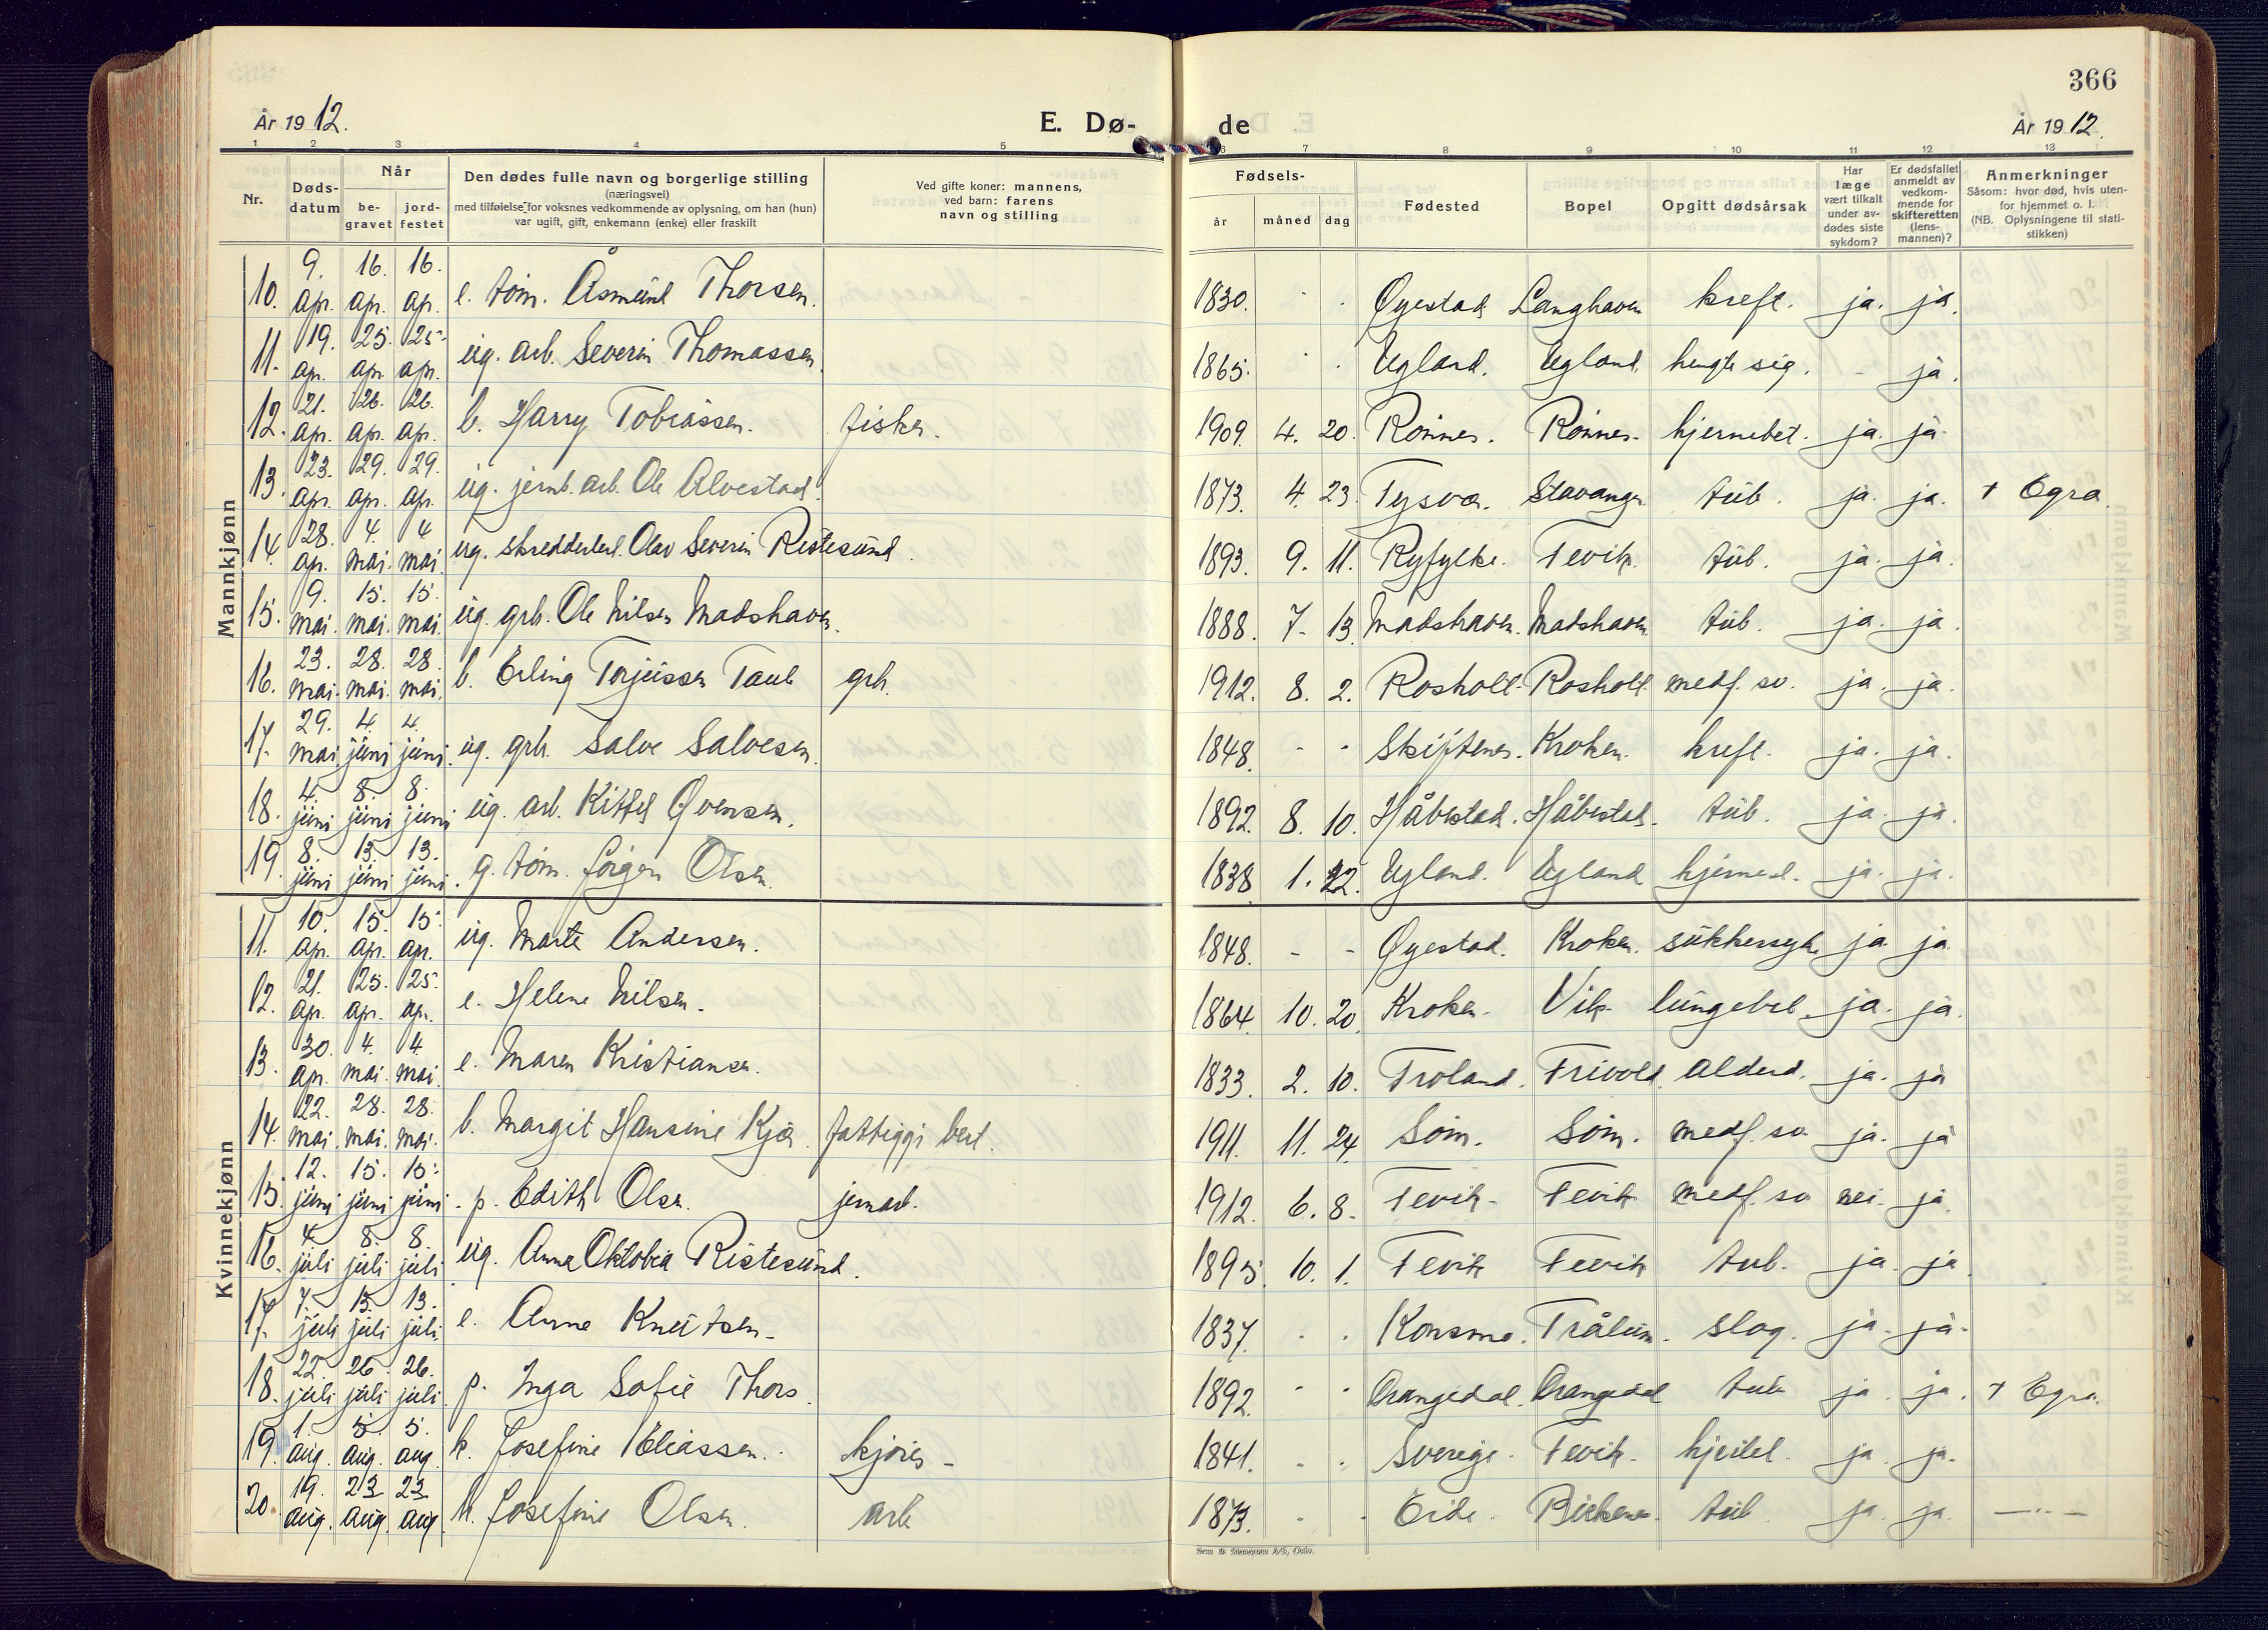 366
År 1912.
E. Dø-
de
År 1912.
1 2 3 4 5 6 7 8 9 10 11 12 13
Nr.
Døds-
datum
Når
be-
gravet
jord-
festet
Den dødes fulle navn og borgerlige stilling
(næringsvei)
med tilføielse for voksnes vedkommende av oplysning, om han (hun)
var ugift, gift, enkemann (enke) eller fraskilt
Ved gifte koner: mannens,
ved barn: farens
navn og stilling
Fødsels-
år måned dag
Fødested
Bopel
Opgitt dødsårsak
Har
læge
vært tilkalt
under av-
dødes siste
sykdom?
Er dødsfallet
anmeldt av
vedkom-
mende for
skifteretten
(lens-
mannen)?
Anmerkninger
Såsom: hvor død, hvis uten-
for hjemmet o. l.
(NB. Oplysningene til stati-
stikken)
Mannkjønn
10. 9. apr. 16. apr. 16. apr. e. tøm. Åsmund Thorsen. 1830. - - Øyestad Langhaven kreft. ja. ja.
11. 19. apr. 25. apr. 25. apr. ug. arb. Severin Thomassen. 1865. - - Ugland. Ugland. hengte sig. - ja.
12. 21. apr. 26. apr. 26. apr. b. Harry Tobiassen. fisker. 1909. 4. 20. Rønnes. Rønnes. hjernebet. ja. ja.
13. 23. apr. 29. apr. 29. apr. ug. jernb. arb. Ole Alvestad. 1873. 4. 23. Tysvær. Stavanger tub. ja. ja. + Egra.
14. 28. ap. 4. mai. 4 mai. ug. skredderl. Olav Severin Ristesund. 1893. 9. 11. Ryfylke. Fevik. tub. ja. ja.
15. 9. mai. 15. mai. 15. mai. ug. grb. Ole Nilsen Madshaven. 1888. 7. 13. Madshaven. Madshaven tub. ja. ja.
16. 23. mai. 28. mai. 28. mai. b. Erling Torjussen Taule grb. 1912. 8. 2. Rosholt. Rosholt medf. sv. ja. ja.
17. 29. mai 4. juni 4. juni. ug. grb. Salve Salvesen. 1848. - - Skiftenes. Kroken. kreft. ja. ja.
18. 4. juni 8. juni 8. juni ug. arb. Kittel Øvensen. 1892. 8. 10. Håbestad. Håbestad. tub. ja. ja.
19. 8. juni 13. juni 13. juni. g. tøm. Jørgen Olsen. 1838 1. 22. Ugland. Ugland hjernesl. ja. ja.
Kvinnekjønn
11. 10. apr. 15. apr. 15. apr. ug. Marte Andersen. 1848. - - Øyestad. Kroken. sukkersyke ja ja
12. 21. apr. 25. apr. 25. apr. e. Helene Nilsen. 1864. 10. 20. Kroken. Vik lungebet. ja. ja.
13. 30. ap. 4. mai. 4. mai. e. Maren Kristiansen. 1833. 2. 10. Froland. Frivold. alderd. ja. ja
14. 22. mai. 28. mai. 28. mai. b. Margit Hansine Kjær. fattiggs best. 1911. 11. 24. Søm. Søm. medf. sv. ja. ja
15. 12. juni 15. juni 15. juni. p. Edith Olsen. jernarb. 1912. 6. 8. Fevik. Fevik medf. sv nei. ja.
16. 4. juli 8. juli 8. juli ug. Anna Oktobia Ristesund. 1895. 10. 1. Fevik Fevik tub. ja. ja.
17. 7. juli 13. juli 13. juli. e. Anne Knutsen. 1837. - - Konsmo. Trålum. slag. ja. ja.
18. 22. juli 26. juli 26. juli p. Inga Sofie Thors. 1892. - - Drangedal. Drangedal tub. ja. ja. + Egra.
19. 1. aug. 5. aug. 5. aug k. Josefine Eliassen. kjører 1841. - - Sverige. Fevik. hjertel. ja. ja.
20. 19. aug. 23 aug. 23 aug k. Josefine Olsen. arb 1873. - - Eide. tub. ja. ja. —"—
Sem & Stenersen A/S, Oslo.